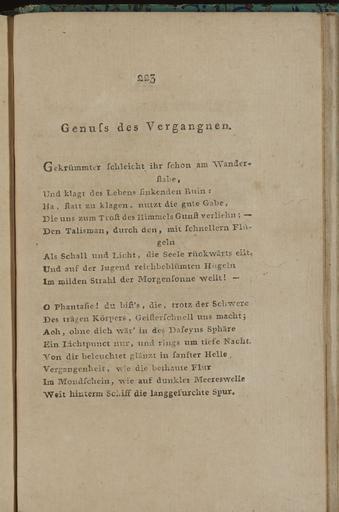 223
Genuſs des Vergangnen.
Gekrümmter ſchleicht ihr ſchon am Wander-
ſtabe,
Und klagt des Lebens ſinkenden Ruin:
Ha, ſtatt zu klagen, nutzt die gute Gabe,
Die uns zum Troſt des Himmels Gunſt verliehn; —
Den Talisman, durch den, mit ſchnellern Flü-
geln
Als Schall und Licht, die Seele rückwärts eilt,
Und auf der Jugend reichbeblümten Hügeln
Im milden Strahl der Morgenſonne weilt! —
O Phantaſie! du biſt's, die, trotz der Schwere
Des trägen Körpers, Geiſterſchnell uns macht;
Ach, ohne dich wär' in des Daſeyns Sphäre
Ein Lichtpunct nur, und rings um tiefe Nacht.
Von dir beleuchtet glänzt in ſanfter Helle
Vergangenheit, wie die bethaute Flur
Im Mondſchein, wie auf dunkler Meereswelle
Weit hinterm Schiff die langgefurchte Spur.